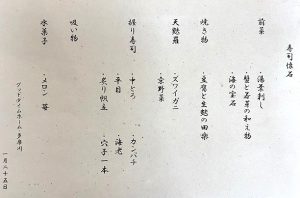 寿司懐石
前菜 ・湯葉刺し
・蟹と若芽の和え物
・海の宝石
焼き物 ・豆腐と生麩の田楽
天麩羅 ・ズワイガニ
・京野菜
握り寿司 ・中とろ ・カンパチ
・平目 ・海老
・炙り帆立 ・穴子一本
吸い物
水菓子 ・メロン 苺
グッドタイムホーム・多摩川
一月二十五日